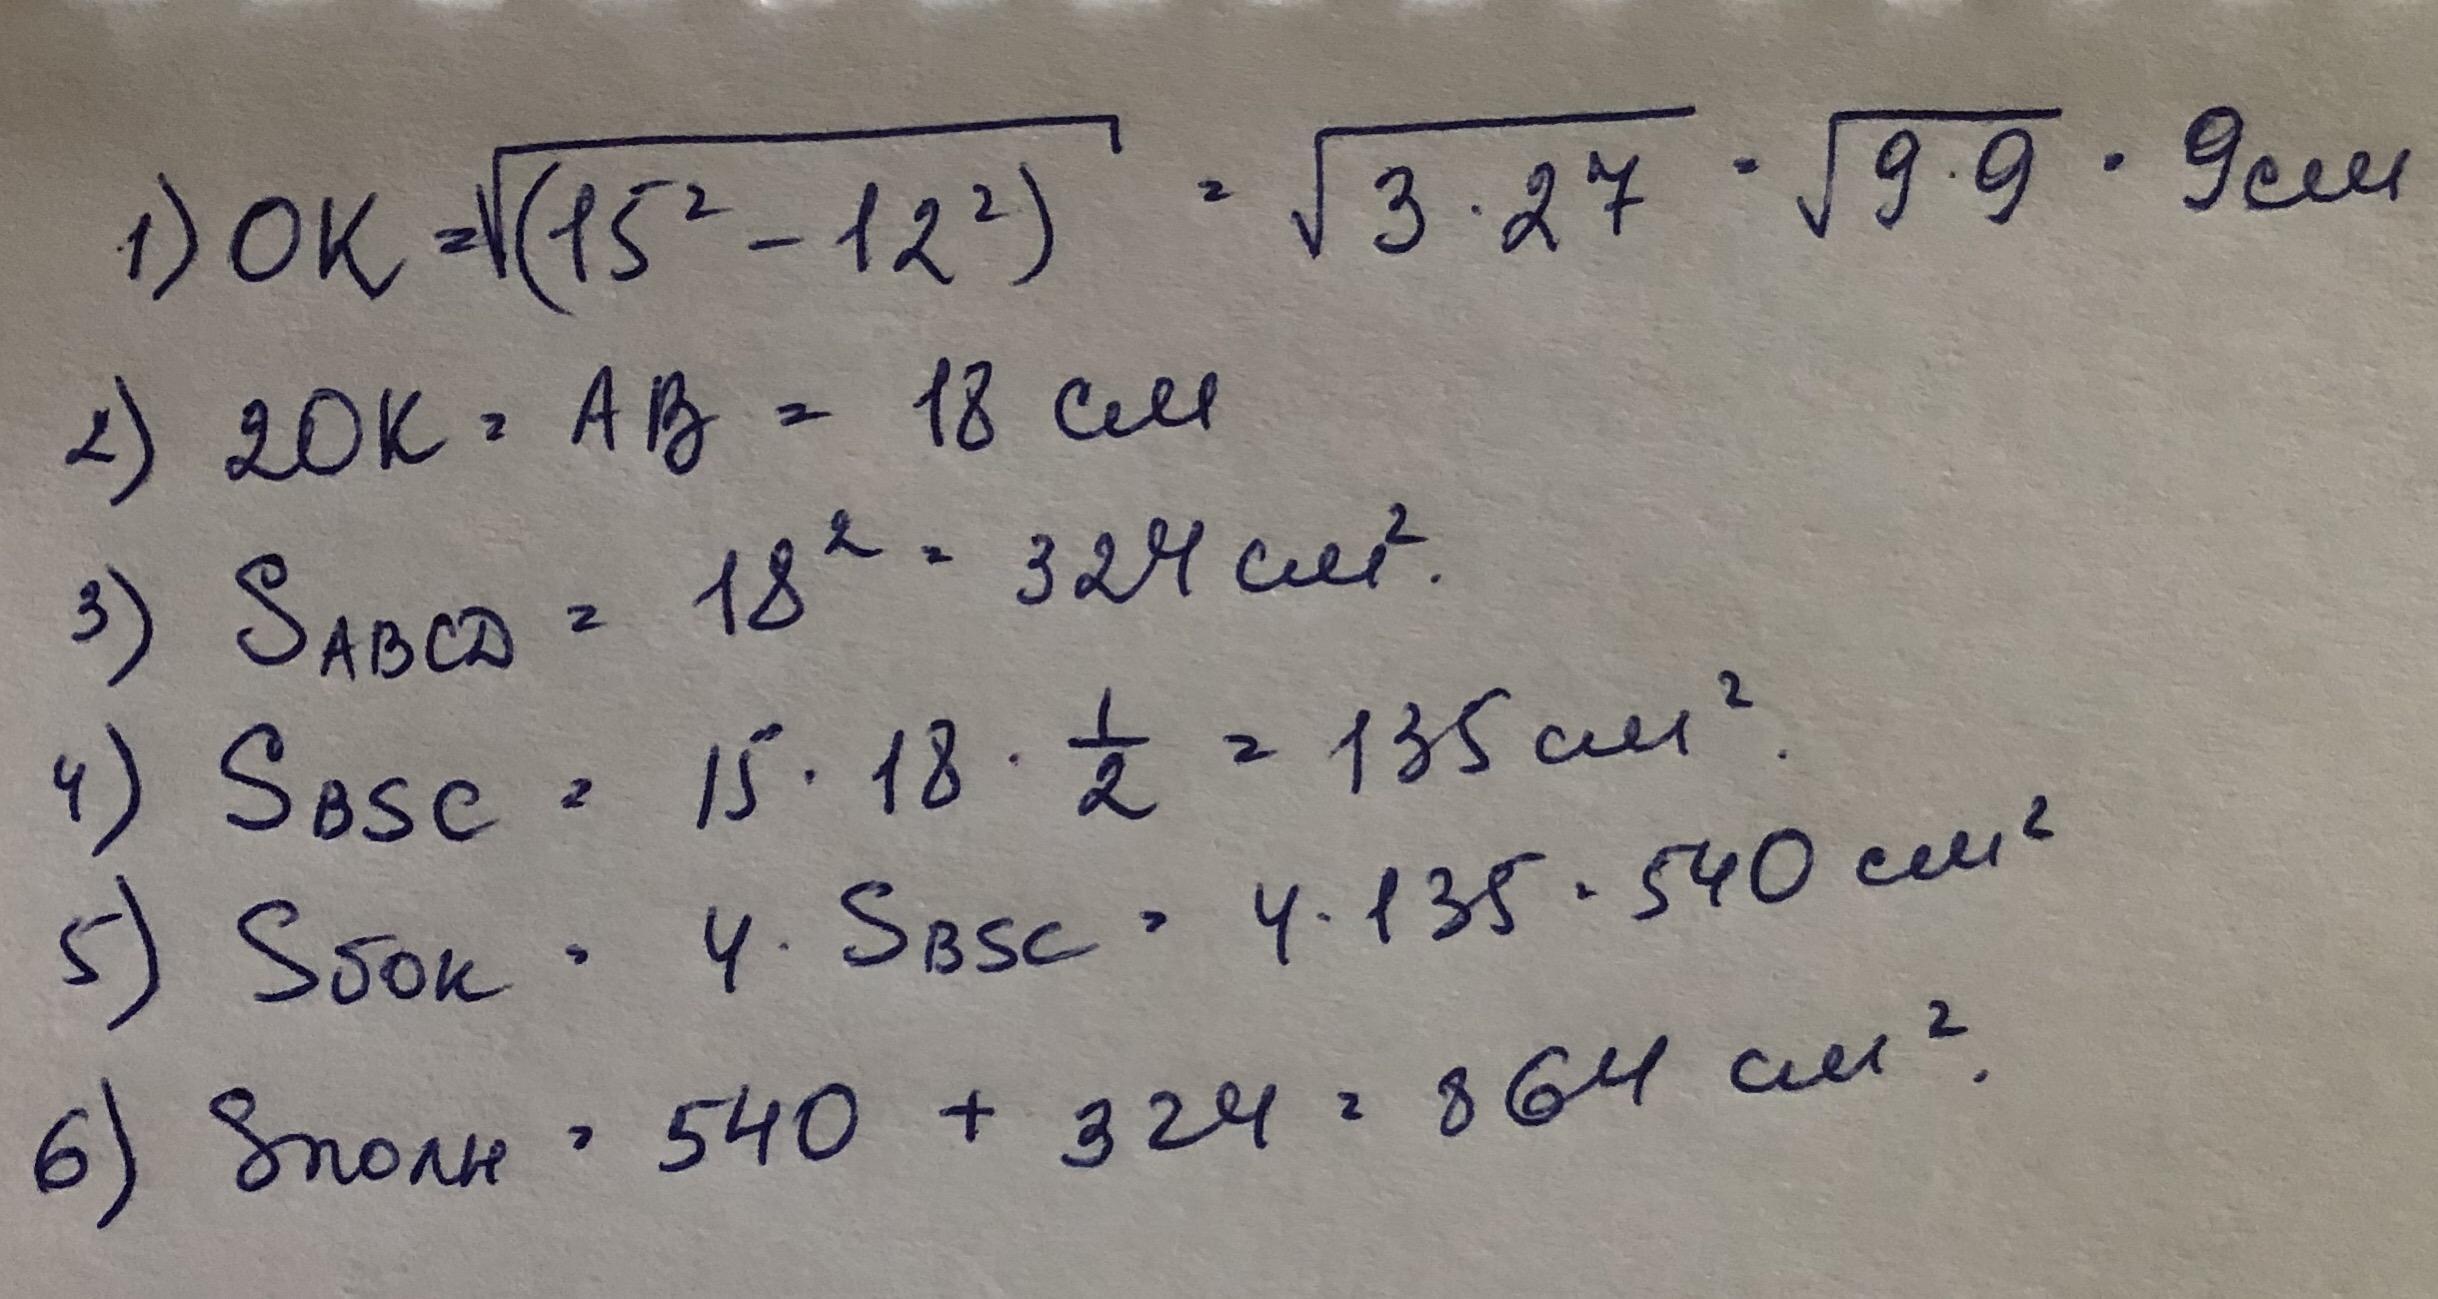 1) OK = √(15² - 12²) = √3·27 = √9·9 = 9см
2) 2OK = AB = 18 см
3) SABCD = 18² = 324 см².
4) SBSC = 15·18·1/2 = 135 см².
5) Sбок = 4·SBSC = 4·135 = 540 см²
6) Sполн = 540 + 324 = 864 см².